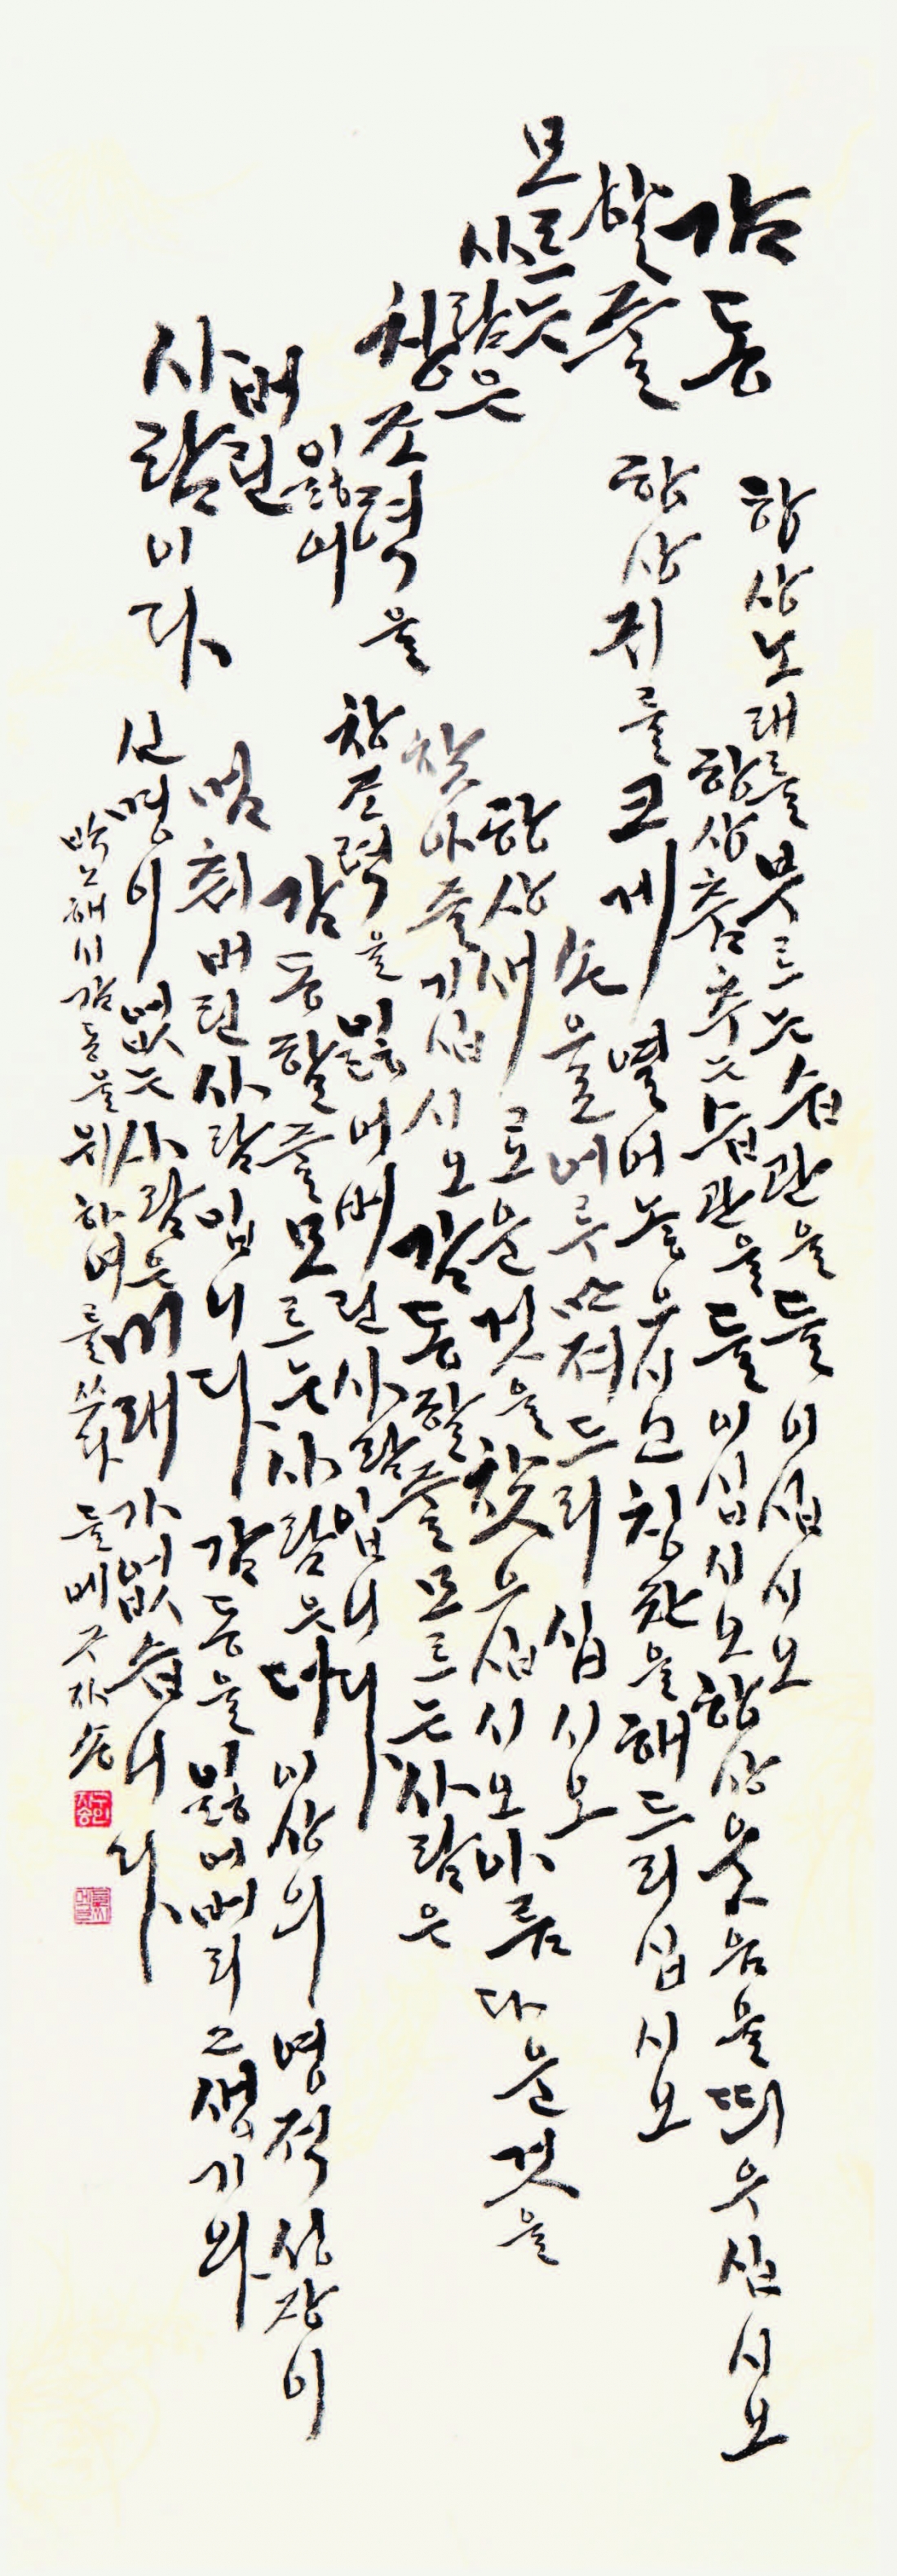 감동
할줄
모르는
사람은
창조력을
잃어
버린
사람이다
항상노래를부르는습관을들이십시오
항상춤추는습관을들이십시오항상웃음을띄우십시오
항상귀를크게열어놓으시고칭찬을해드리십시오
손을어루만져드리십시오
항상새로운것을찾으십시오아름다운것을
찾아즐기십시오감동할줄모르는사람은
창조력을잃어버린사람입니다
감동할줄모르는사람은더이상의영적성장이
멈춰버린사람입니다감동을잃어버리고생기와
신명이없는사람은미래가없습니다
박노해시감동을위하여를쓰다들메구자송